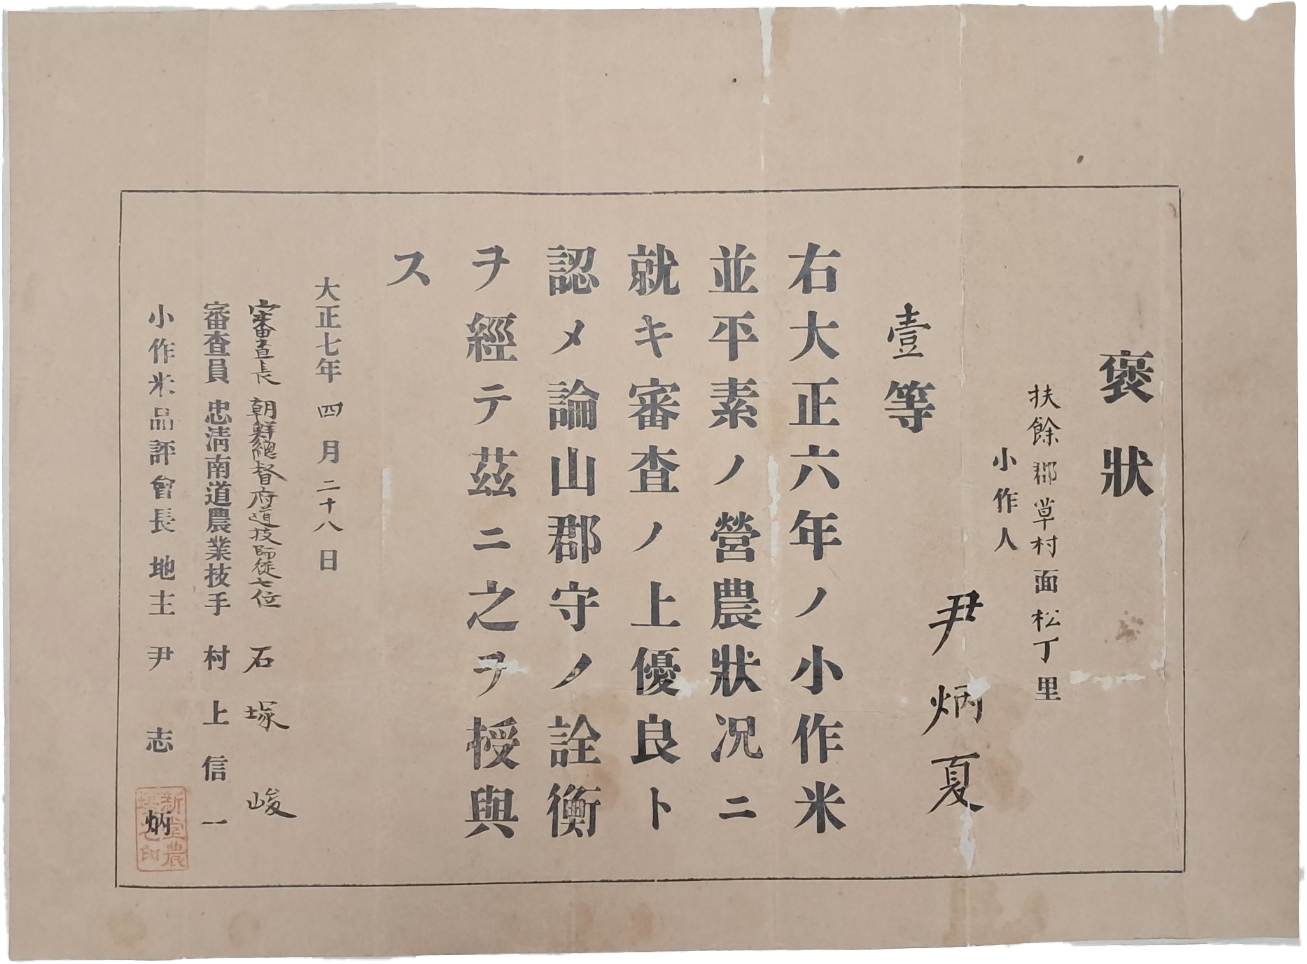 褒狀
扶餘郡草村面松丁里
小作人
尹炳夏
壹等
右大正六年ノ小作米
並平素ノ營農狀況ニ
就キ審査ノ上優良ト
認メ論山郡守ノ詮衡
ヲ經テ茲ニ之ヲ授與
ス
大正七年四月二十八日
審査長 朝鮮總督府道技師從七位 石塚峻
審査員 忠淸南道農業技手 村上信一
小作米品評會長 地主 尹志炳